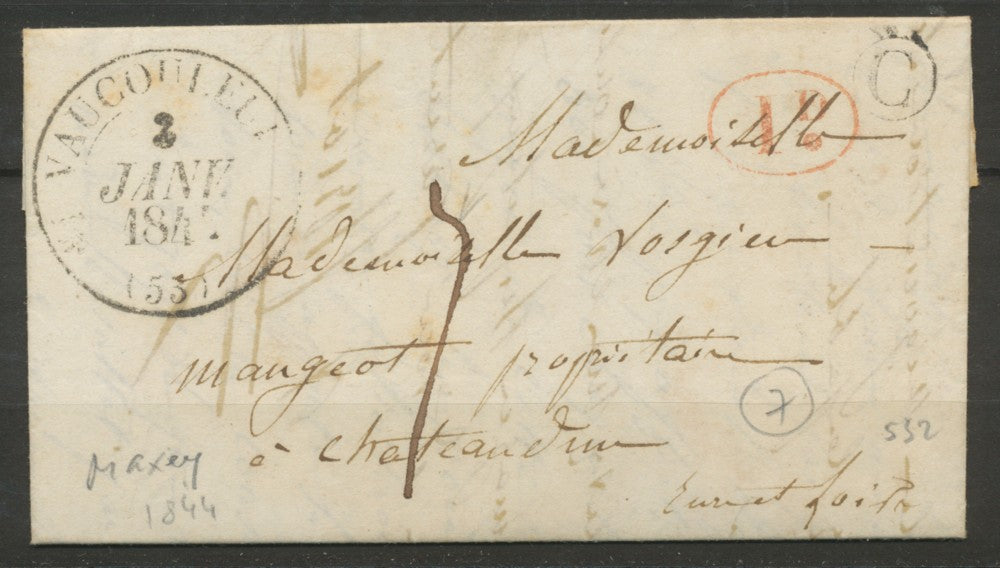 VAUCOULEU
2
JANV
184
(53)
1D
G
Mademoiselle
Mademoiselle Losgien
mangeot propriétaire
à chateaudun
Eure et Loir
7
7
532
Maxey
1844